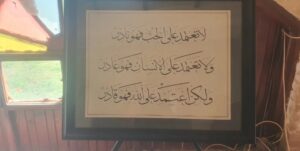 لا تعتمد على الحب فهو نادر
ولا تعتمد على الإنسان فهو غادر
ولكن اعتمد على الله فهو قادر